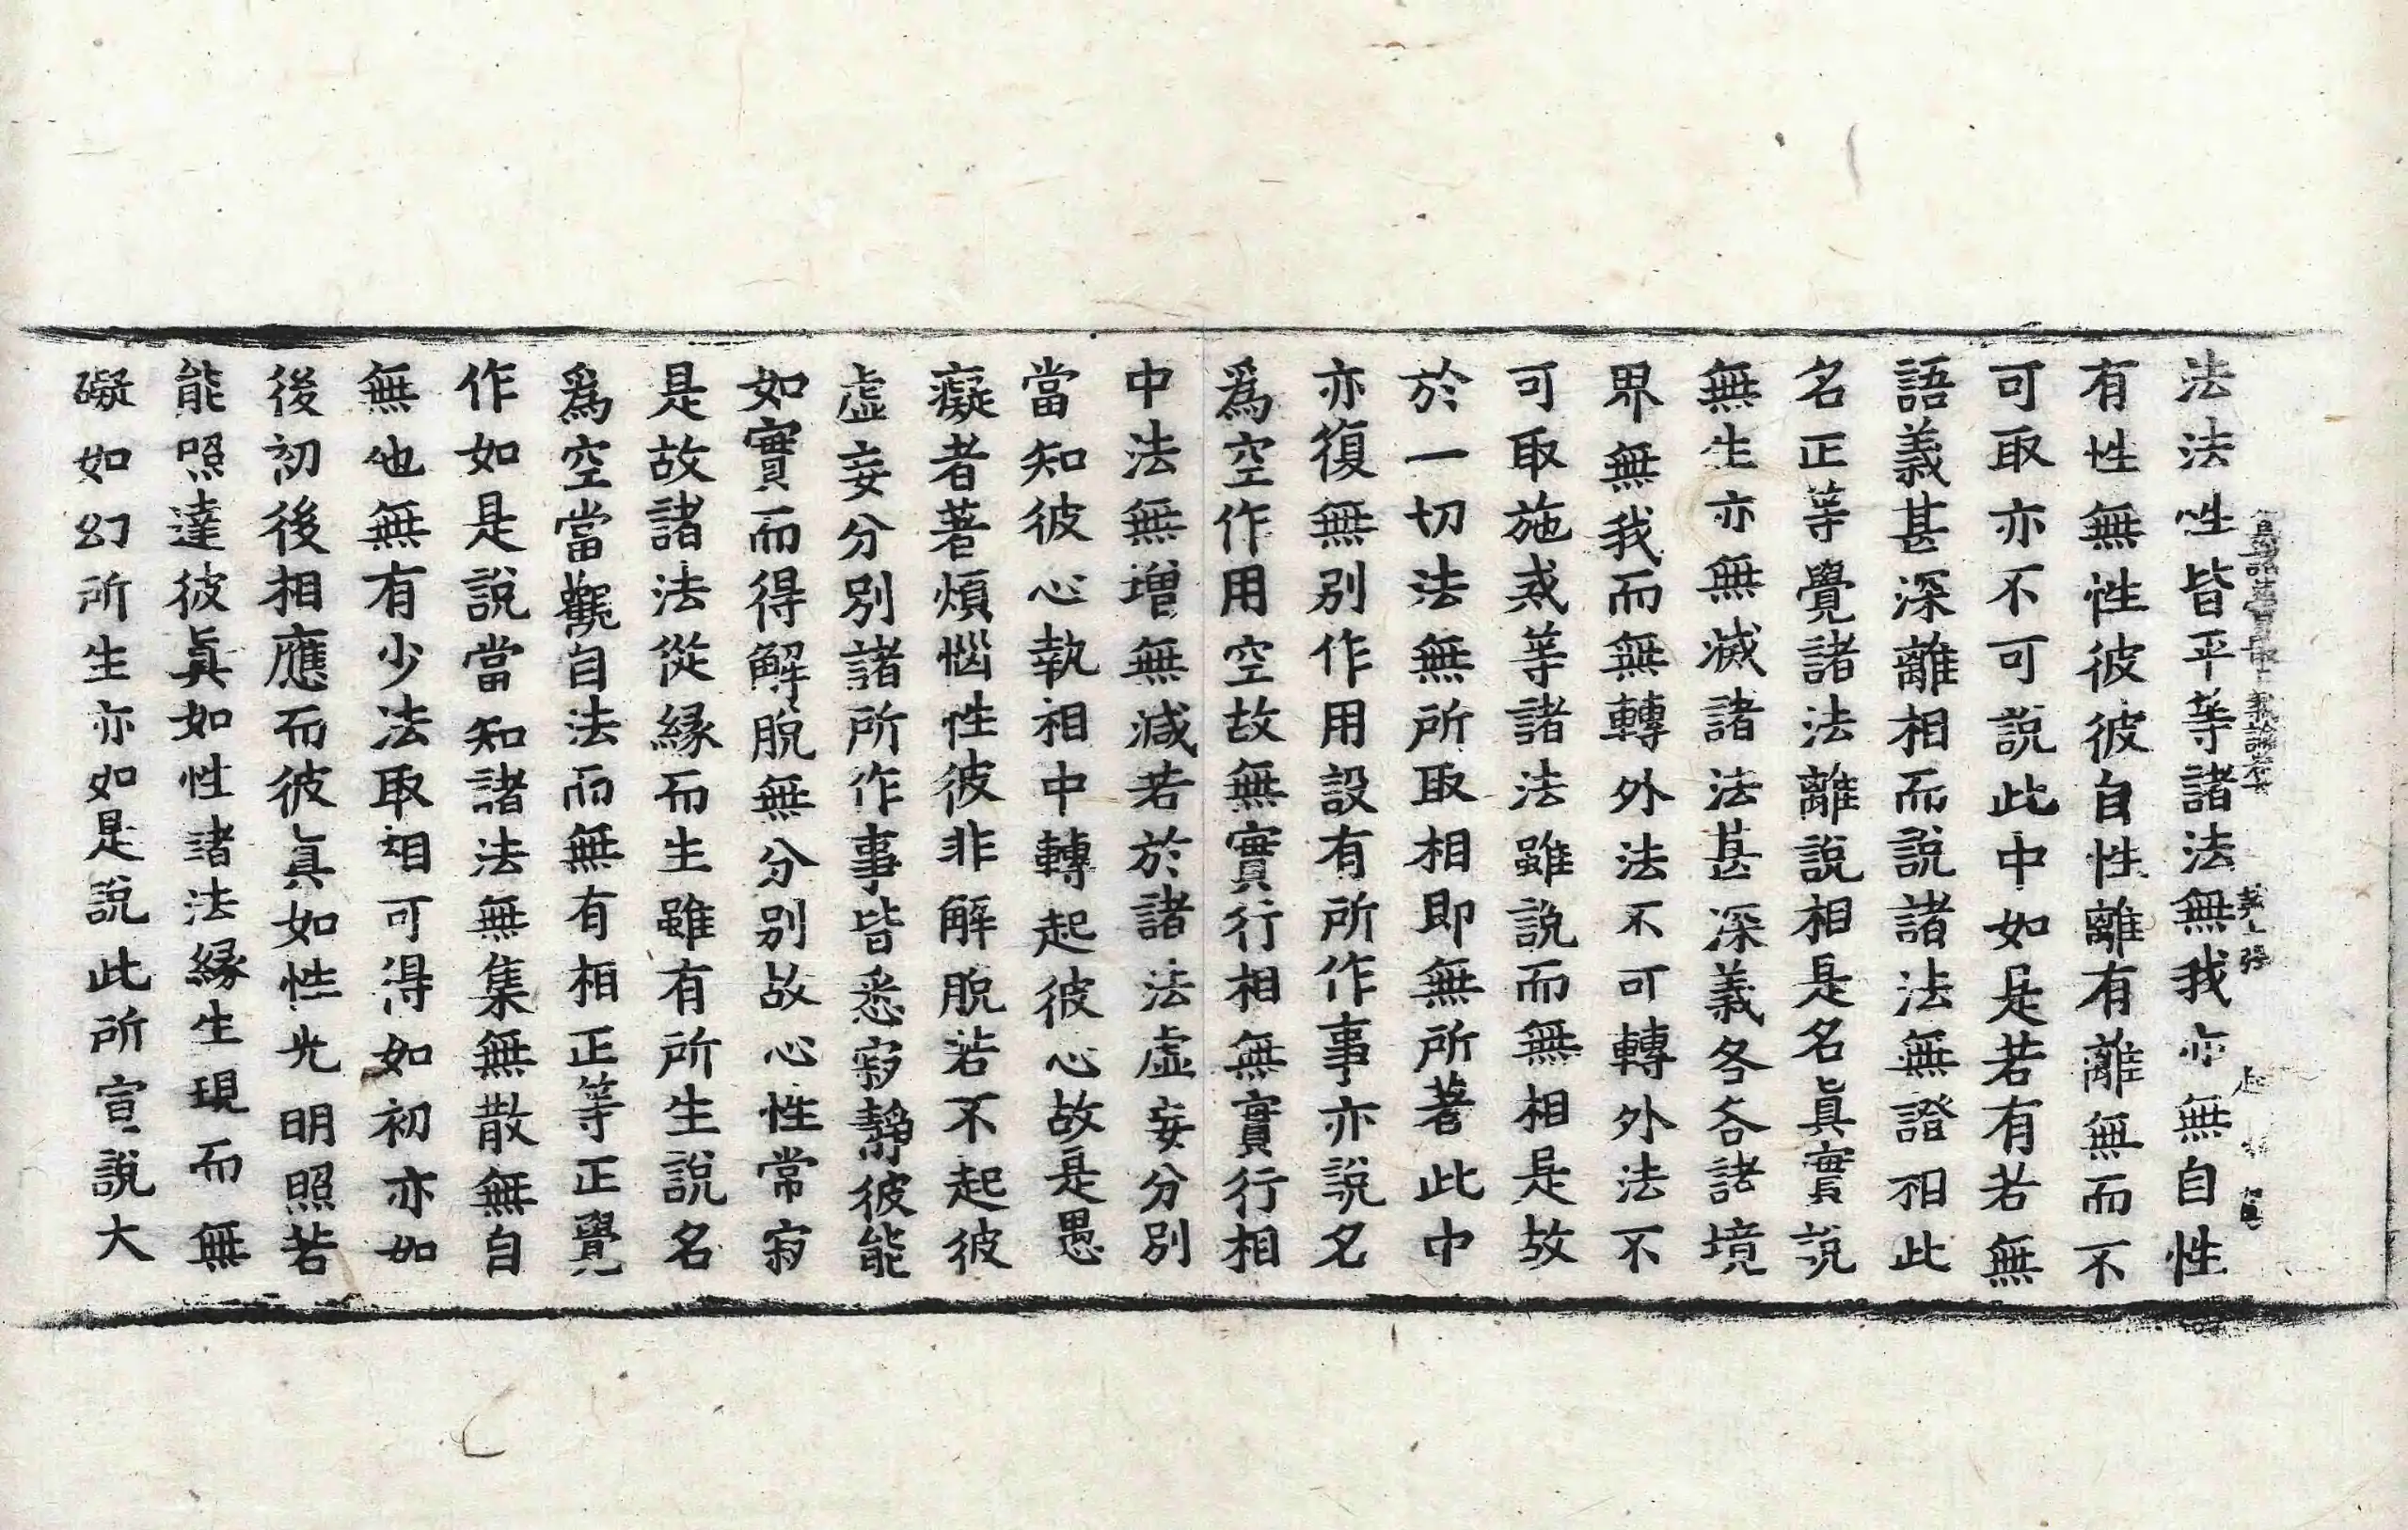 法法性皆平等諸法無我亦無自性
有性無性彼彼自性離有離無而不
可取亦不可說此中如是若有若無
語義甚深離相而說諸法無證相此
名正等覺諸法離說相是名眞實說
無生亦無滅諸法甚深義各各諸境
界無我而無轉外法不可轉外法不
可取施戒等諸法雖說而無相是故
於一切法無所取相即無所著此中
亦復無別作用設有所作事亦說名
爲空作用空故無實行相無實行相
中法無增無減若於諸法虛妄分別
當知彼心執相中轉起彼心故是愚
癡者著煩惱性彼非解脫若不起彼
虛妄分別諸所作事皆悉寂靜彼能
如實而得解脫無分別故心性常寂
是故諸法從緣而生雖有所生說名
爲空當觀自法而無有相正等正覺
作如是說當知諸法無集無散無自
無他無有少法取相可得如初亦如
後初後相應而彼眞如性光明照若
能照達彼眞如性諸法緣生現而無
礙如幻所生亦如是說此所宣說大